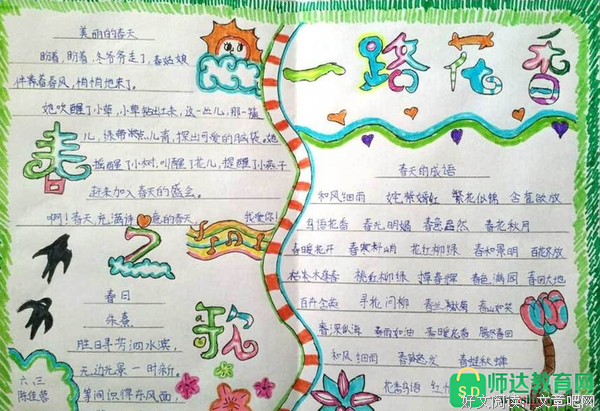 美丽的春天
盼着,盼着,冬爷爷走了,春姑娘
伴着春风,悄悄地来了。
她吹醒了小草,小草钻出土来,这一丛儿,那一
儿,绿带点儿青,探出可爱的脑袋。她
摇醒了小树,叫醒了花儿,提醒了小燕子
赶来加入春天的盛会。
啊!春天,充满诗意的春天,我爱你!
春之歌
春日
朱熹
胜日寻芳泗水滨,
无边光景一时新。
等闲识得东风面,
六、三
陈佳蓉
一路花香
春天的成语
和风细雨 姹紫嫣红 繁花似锦 含苞欲放
鸟语花香 春光明媚 春意盎然 春花秋月
春暖花开 春寒料峭 花红柳绿 春和景明 百花齐放
桃红柳绿 春色满园 春回大地
百卉含英 寻花问柳 春兰秋菊 春山如笑
春深似海 春雨如油 春暖花香
和风细雨 春蛙秋蝉
师达教育网
shidaedu.com
好文阅读|文章吧网